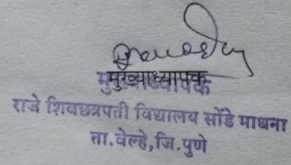 मुख्याध्यापक
राजे शिवछत्रपती विद्यालय सोंडे माथना
ता.वेल्हे,जि.पुणे